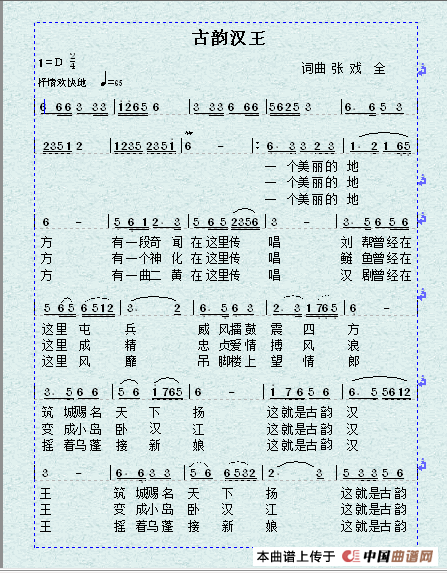 古韵汉王
1=D 2/4
词曲 张 戏 全
抒情欢快地 ♩=65
6 66 3 33 | 12656 | 3 33 6 66 | 56253 | 6. 6 5 3
2351 2 | 1235 2351 | 6 - : 6. 3 3 2 3 | 1. 2 1 65
一 个美丽的 地
一 个美丽的 地
一 个美丽的 地
6 - | 5 6 1 2. 3 | 5 6 5 2356 | 3 - | 3. 5 6 5 6
方 有一段奇 闻 在 这里传 唱 刘 帮曾经在
方 有一个神 化 在 这里传 唱 鲢 鱼曾经在
方 有一曲二 黄 在 这里传 唱 汉 剧曾经在
5 65 6512 | 3. 2 | 6. 5 6 3 | 2. 3 1 765 | 6 -
这里 屯 兵 威 风擂鼓 震 四 方
这里 成 精 忠 贞爱情 搏 风 浪
这里 风 靡 吊 脚楼上 望 情 郎
3. 5 6 6 | 5 6 1765 | 6 - | 1 7 6 5 6 | 6. 5 5612
筑 城赐名 天 下 扬 这就是古韵 汉
变 成小岛 卧 汉 江 这就是古韵 汉
摇 着乌蓬 接 新 娘 这就是古韵 汉
3 - | 6. 6 3 3 | 5 6 6532 | 2. 3 | 5 3 3 5 6
王 筑 城赐名 天 下 扬 这就是古韵
王 变 成小岛 卧 汉 江 这就是古韵
王 摇 着乌蓬 接 新 娘 这就是古韵
本曲谱上传于 中国曲谱网